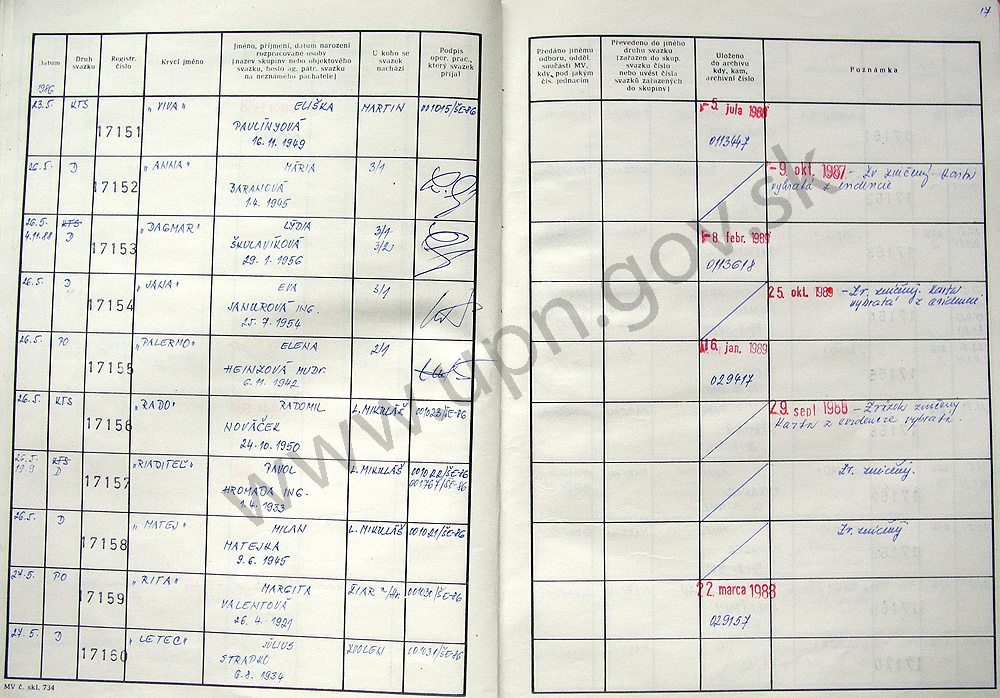 17
Datum
Druh svazku
Registr. číslo
Krycí jméno
Jméno, příjmení, datum narození rozpracované osoby (název skupiny nebo objektového svazku, heslo ag. pátr. svazku na neznámého pachatele)
U koho se svazek nachází
Podpis oper. prac., který svazek přijal
Předáno jinému odboru, odděl. součásti MV, kdy, pod jakým čís. jednacím
Převedeno do jiného druhu svazku (zařazen do skup. svazku číslo nebo uvést čísla svazků zařazených do skupiny)
Uloženo do archivu kdy, kam, archivní číslo
Poznámka
1986
23.5. KTS 17151 "VIVA" ELIŠKA MARTIN 001015/ŠE-86 -5. júla 1988
PAULÍNYOVÁ 0113447
16.11.1949
26.5. D 17152 "ANNA" MÁRIA 3/1 -9. okt. 1987 - Zv. zničený. Karta
BARANOVÁ vybratá z evidencie
1.4.1945
26.5. KTS 17153 "DAGMAR" LÝDIA 3/1 -8. febr. 1989
4.11.88 D ŠKULAVÍKOVÁ 3/2 0113618
29.1.1956
26.5. D 17154 "JANA" EVA 3/1 25. okt. 1989 - Zv. zničený. Karta
JANUROVÁ ING. vybratá z evidencie.
25.7.1954
26.5. PO 17155 "PALERMO" ELENA 2/1 16. jan. 1989
HEINZOVÁ MUDr. 029417
6.11.1942
26.5. KTS 17156 "RADO" RADOMIL L. MIKULÁŠ 001023/ŠE-86 29. sept 1988 - Zväzok zničený
NOVÁČEK Karta z evidencie vybratá.
24.10.1950
26.5. KTS 17157 "RIADITEĽ" PAVOL L. MIKULÁŠ 001022/ŠE-86 Zv. zničený.
19.9 D HROMADA ING. 001767/ŠE-86
1.4.1933
26.5. D 17158 "MATEJ" MILAN L. MIKULÁŠ 001021/ŠE-86 Zv. zničený
MATEJKA
9.6.1945
27.5. PO 17159 "RITA" MARGITA ŽIAR n/Hr. 001031/ŠE-86 22. marca 1988
VALENTOVÁ 029157
26.4.1921
27.5. D 17160 "LETEC" JÚLIUS ZVOLEN
6.8.1934
MV č. skl. 734
www.upn.gov.sk